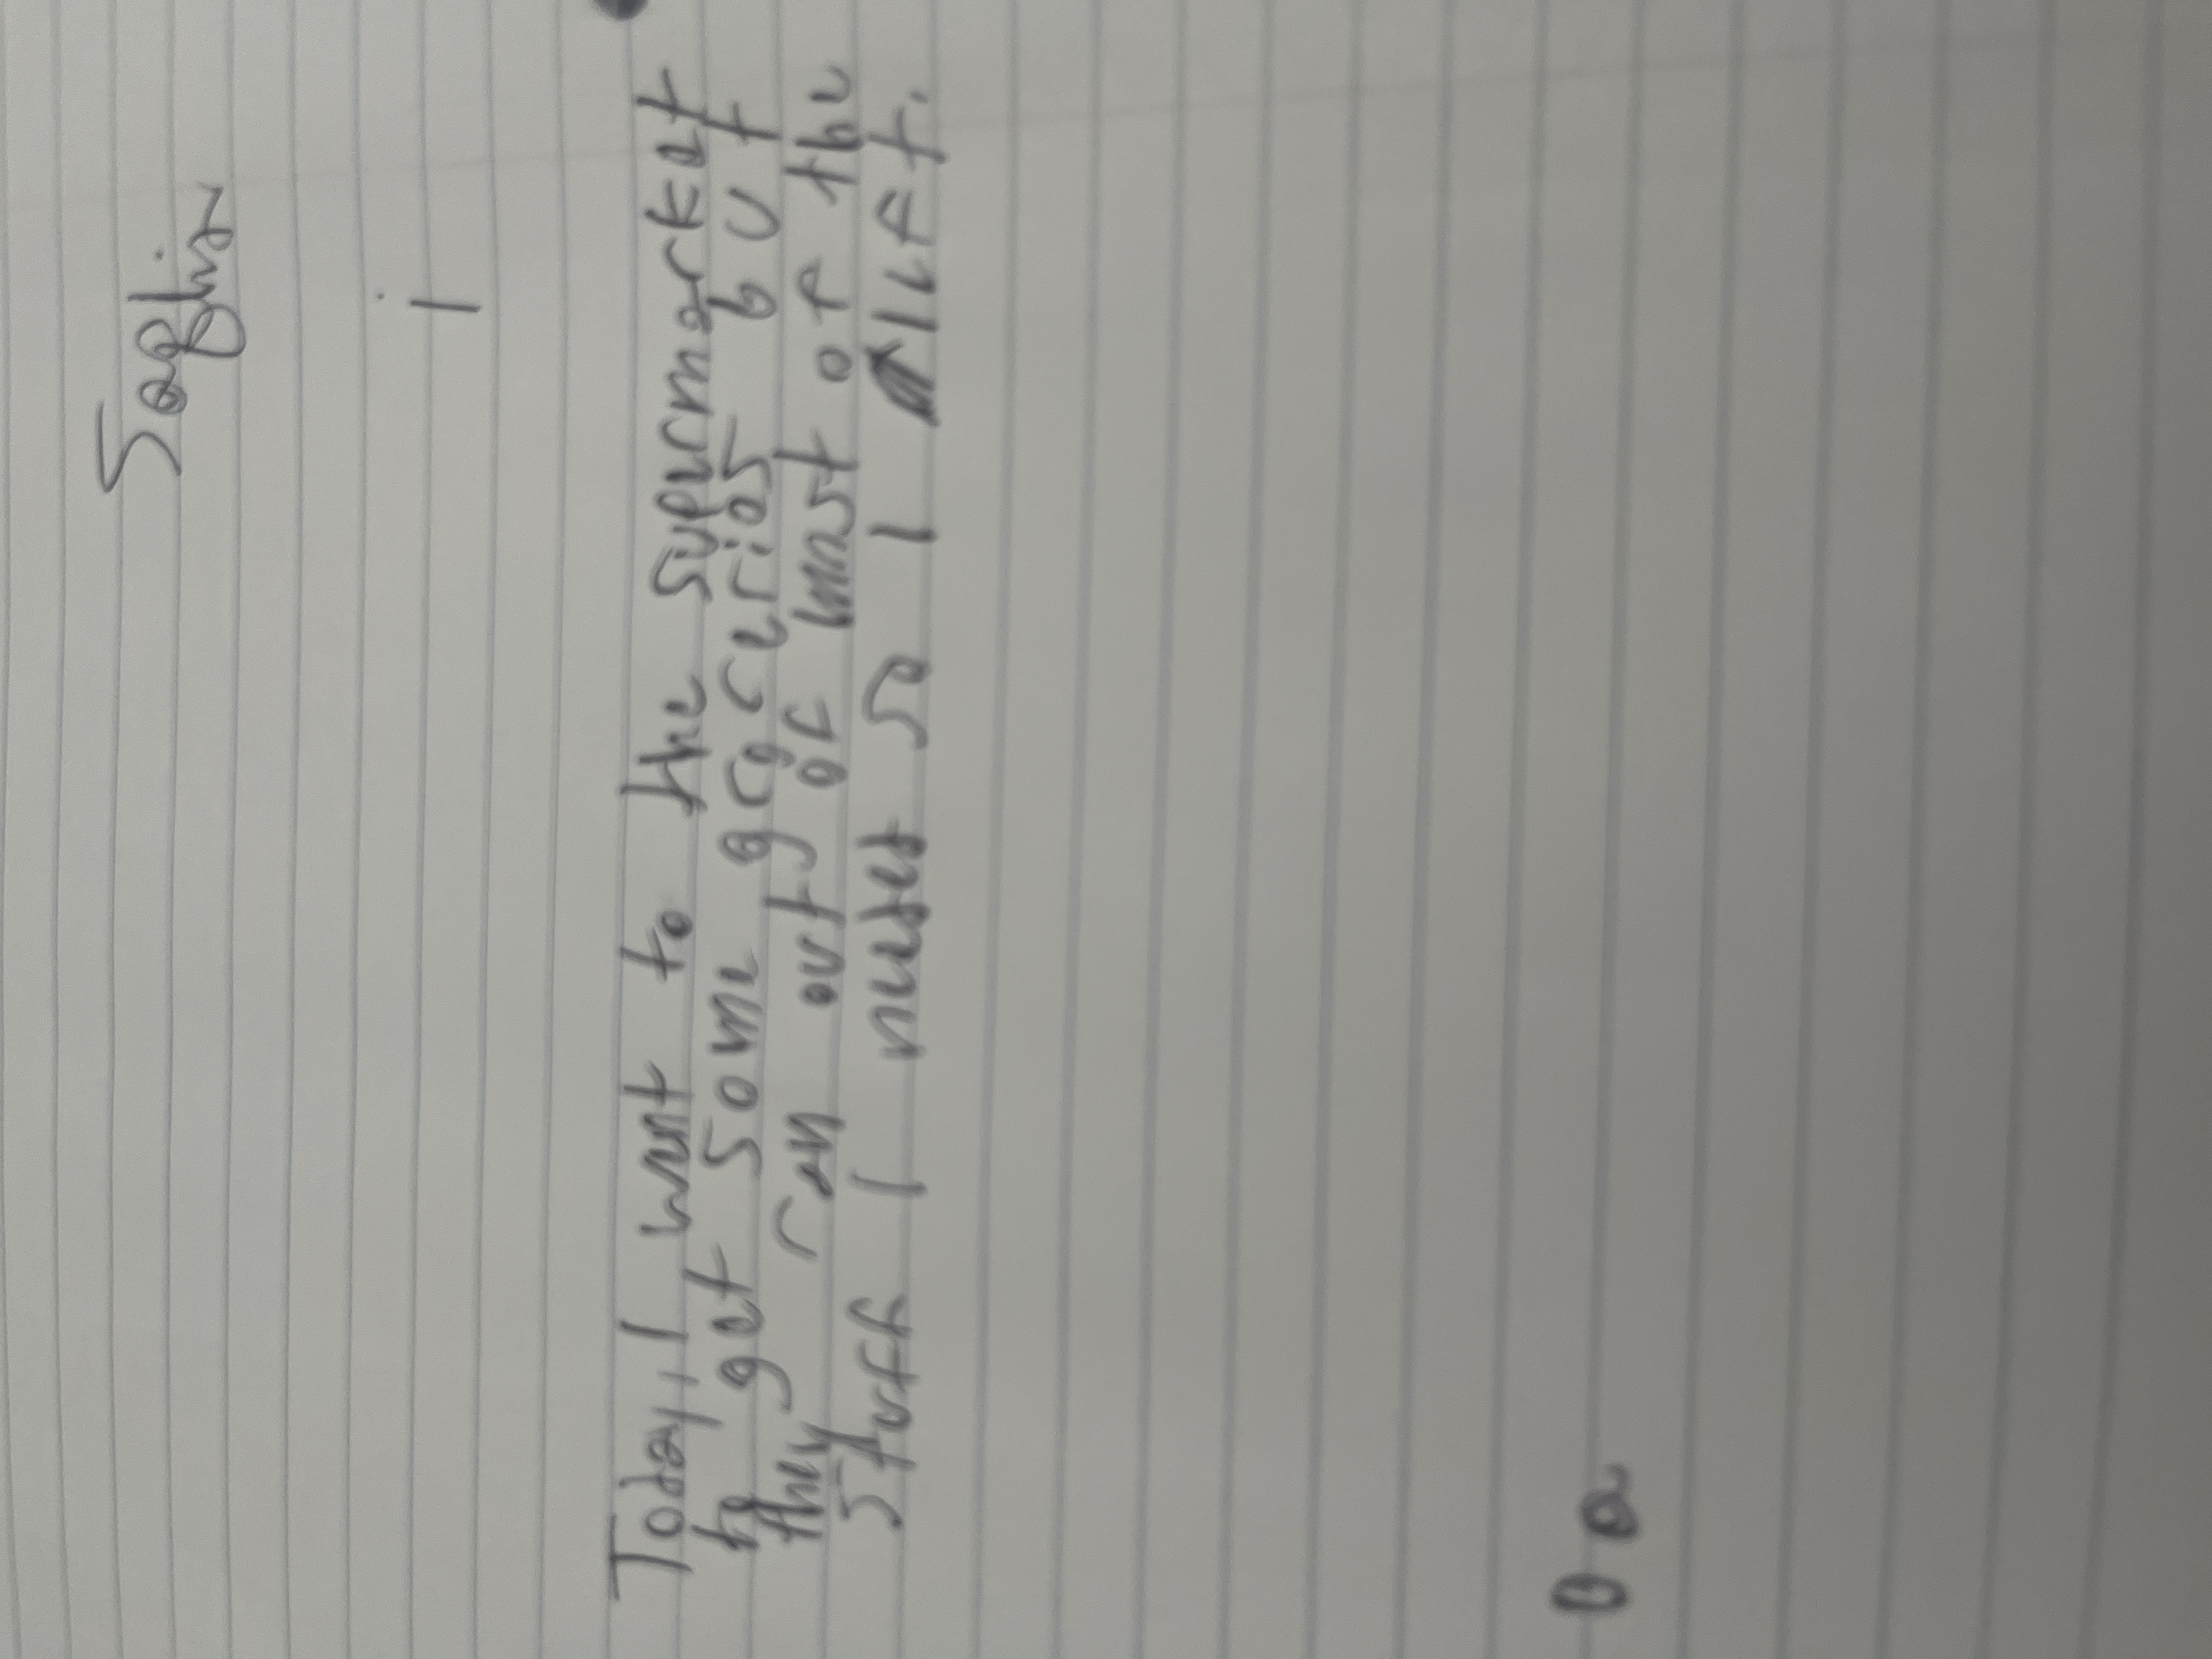 Today, I went to the supermarket
to get some groceries but
they ran out of most of the
stuff I needed so I left.